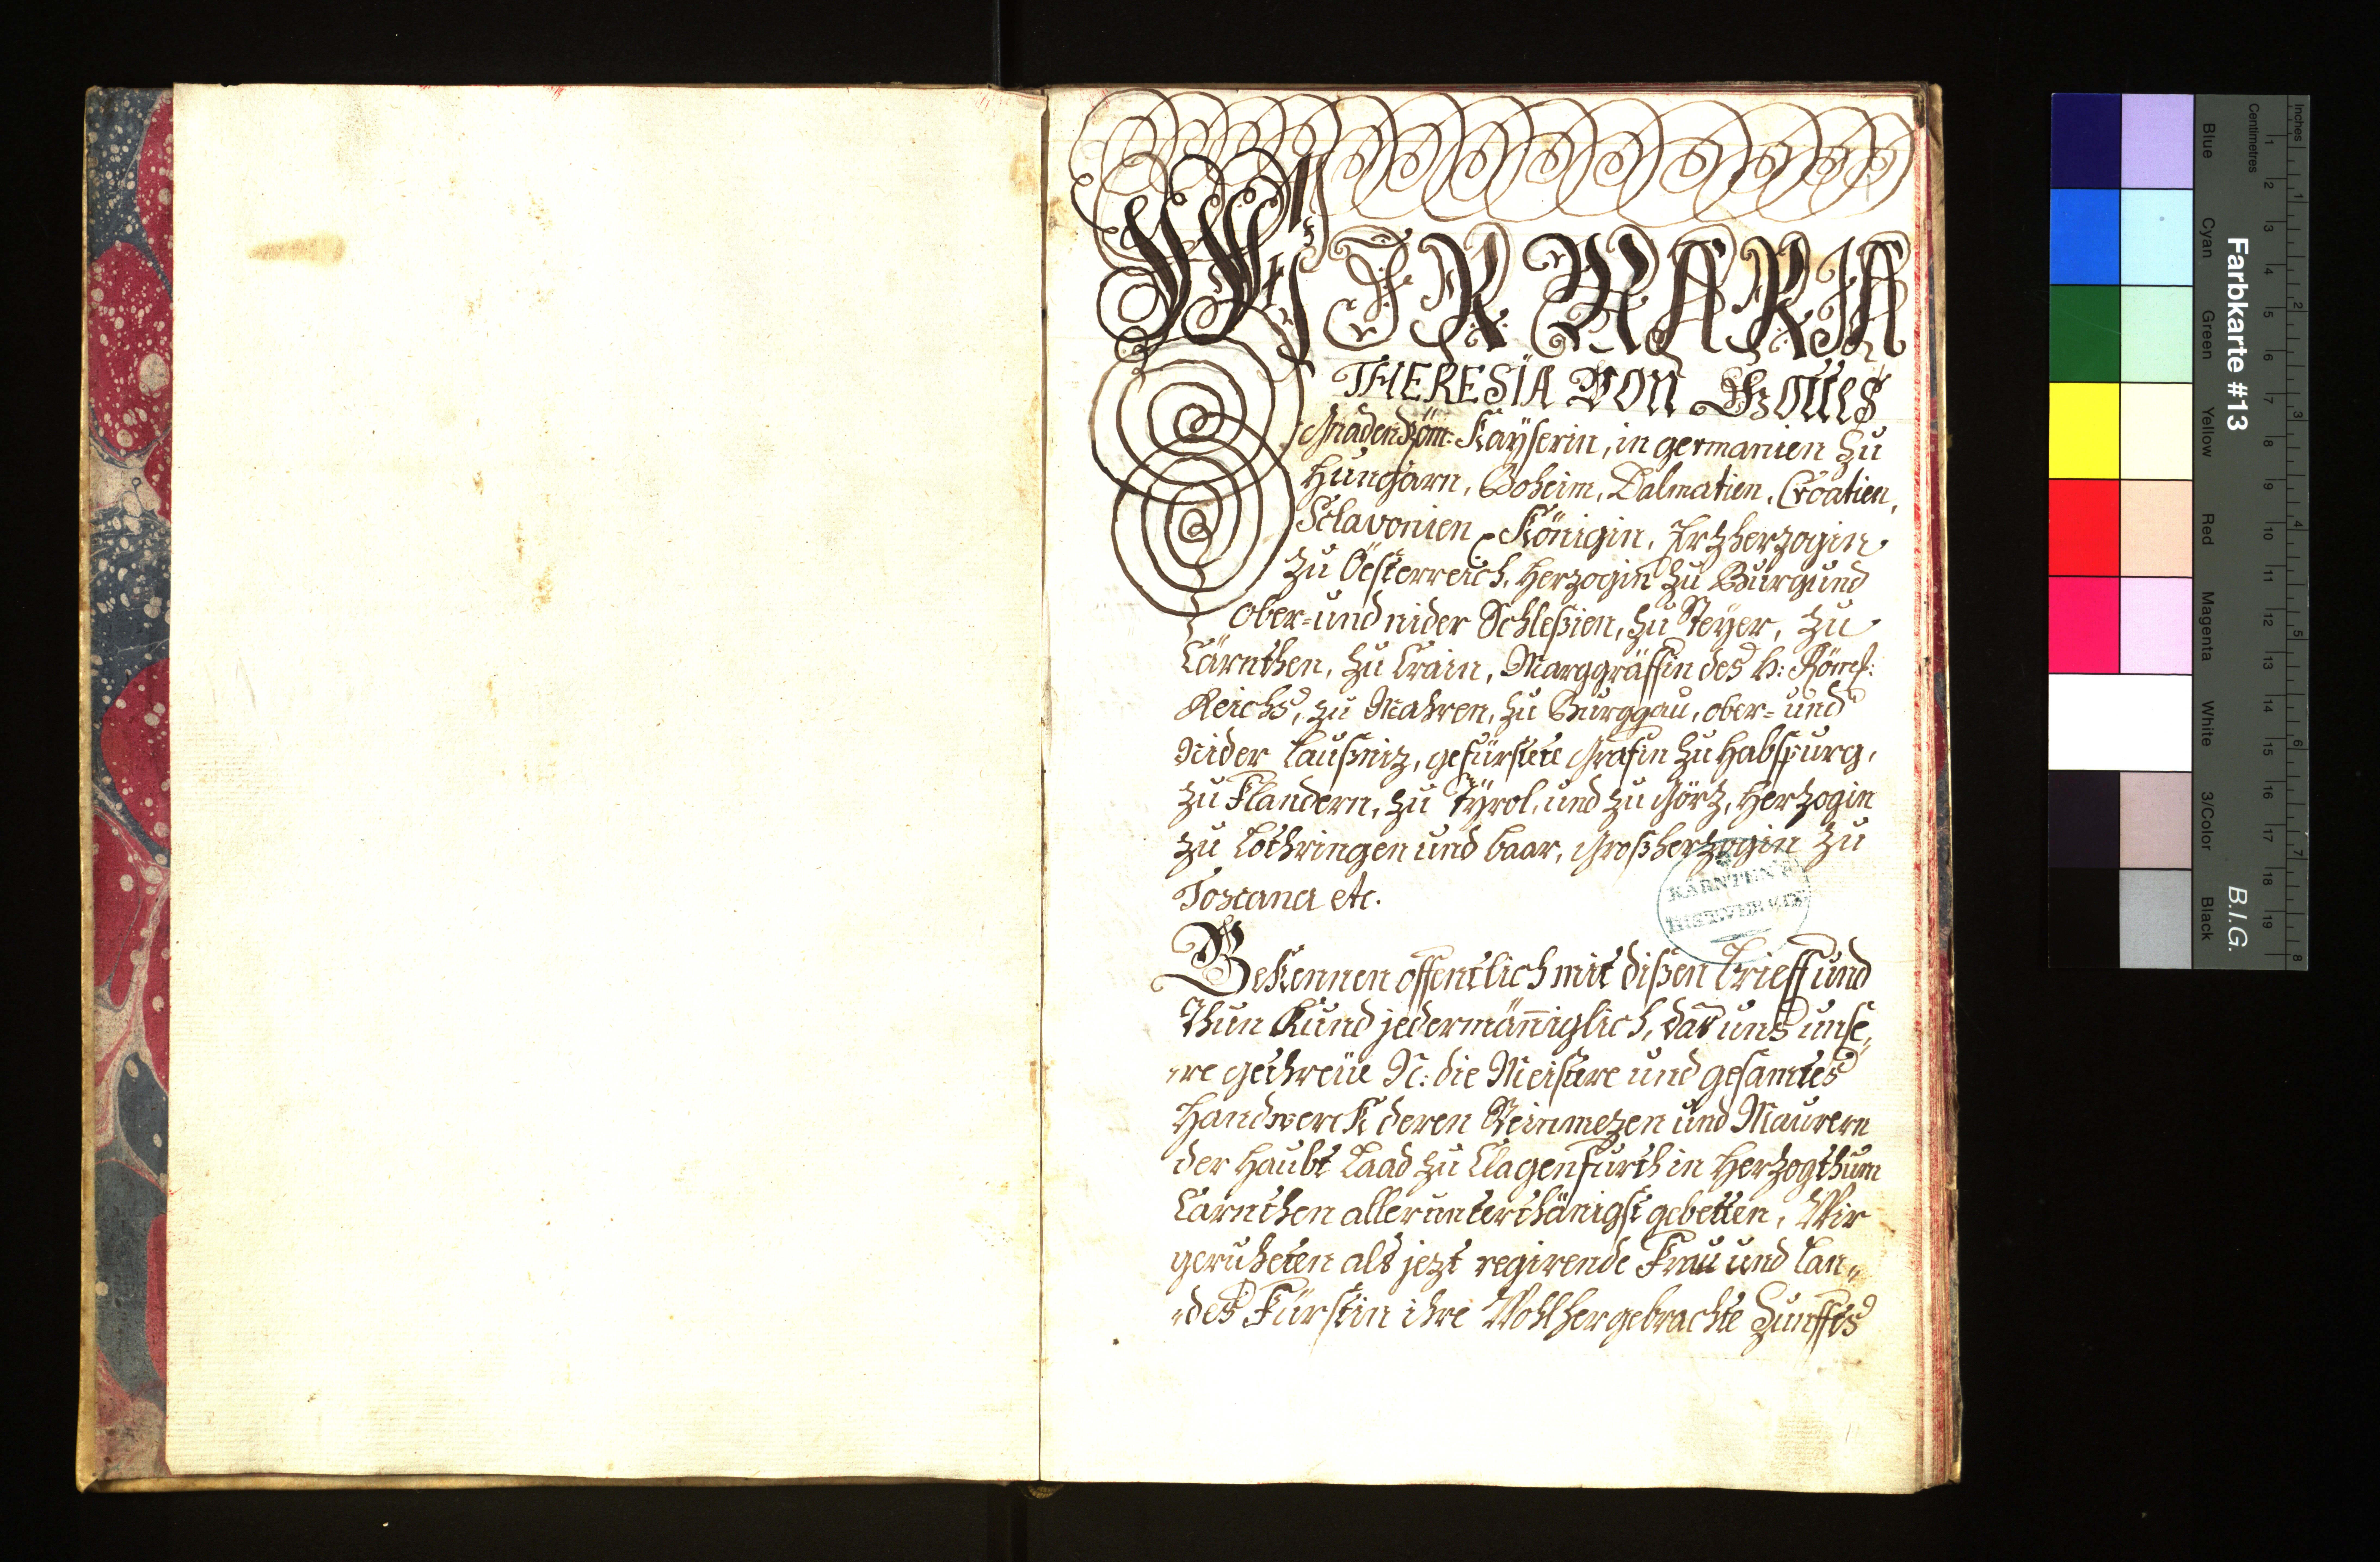 WIR MARIA
THERESIA VON GOTTES
Gnaden Röm: Kaÿserin, in germanien zu
Hungarn, Boheim, Dalmatien, Croatien,
Sclavonien Königin, Ertzherzogin
zu Öesterreich, Herzogin zu Burgund
ober- und nider Schleßien, zu Steÿer, zu
Cärnthen, zu Crain, Marggräffin des h: Römß:
Reichs, zu Mahren, zu Burggau, ober- und
Nider Laußniz, gefürstete Grafin zu Habspurg,
zu Flandern, zu Tÿrol, und zu Görz, Herzogin
zu Lothringen und baar, Großherzogin zu
Toscana etc.
KÄRNTEN
Bekennen offentlich mit dißen brieff und
Thun Kund jedermäñiglich, das uns unse„
„re gethreüe N: die Meistere und gesamtes
Handwerck deren Steinmezen und Maurern
der Haubt Laad zu Clagenfurth in Herzogthum
Carnthen allerunterthänigst gebetten, Wir
geruheten als jezt regirende Frau und Lan„
„des Fürstin ihre Wohlhergebrachte Zunffts
Inches
Centimetres
1 2 3 4 5 6 7 8 9 10 11 12 13 14 15 16 17 18 19
1 2 3 4 5 6 7 8
Farbkarte #13
B.I.G.
Blue
Cyan
Green
Yellow
Red
Magenta
White
3/Color
Black